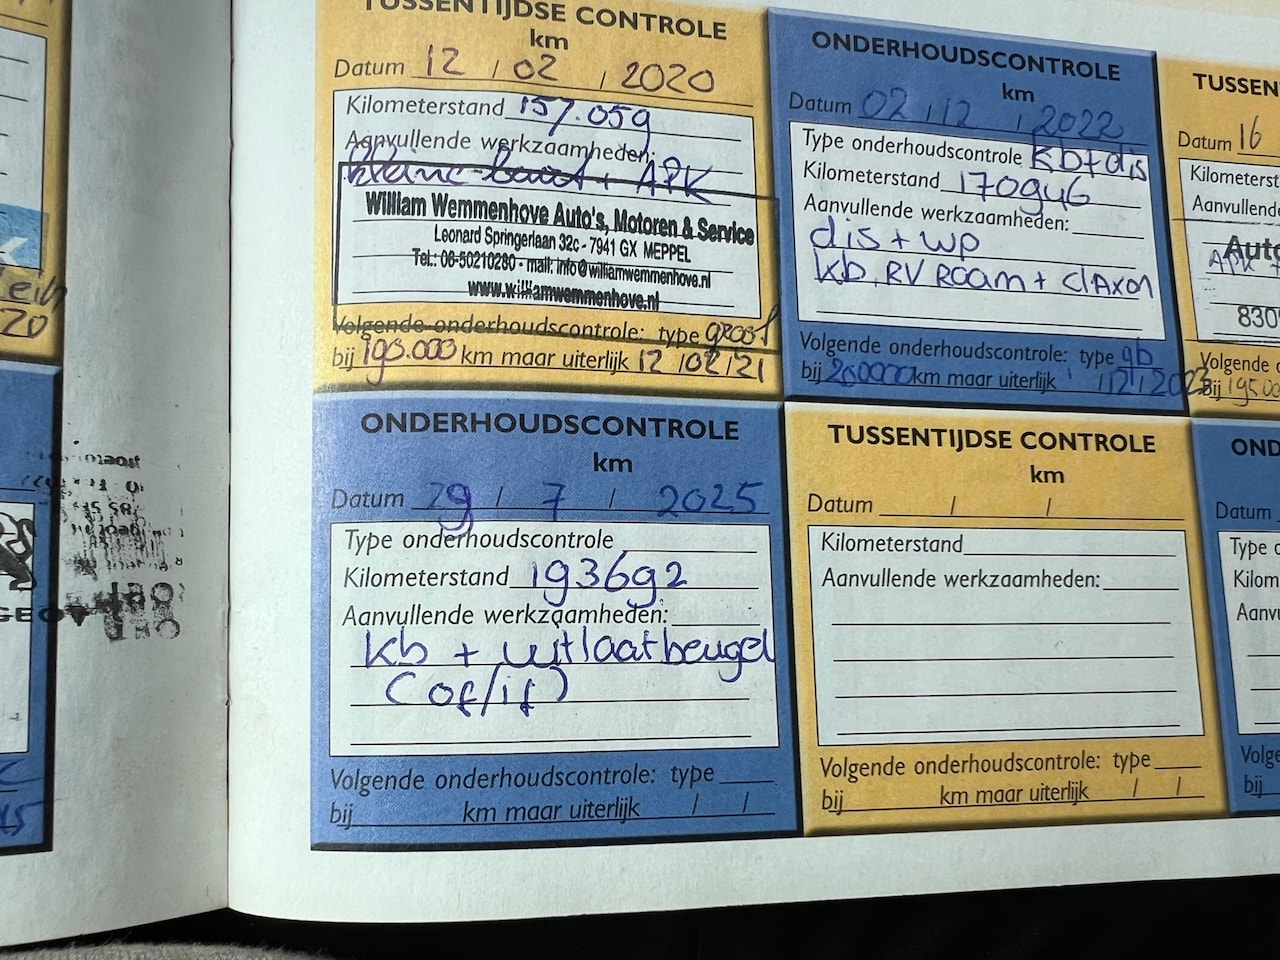 TUSSENTIJDSE CONTROLE
km
Datum 12 / 02 / 2020
Kilometerstand 157.059
Aanvullende werkzaamheden:
kleine beurt + APK
William Wemmenhove Auto's, Motoren & Service
Leonard Springerlaan 32c - 7941 GX MEPPEL
Tel.: 06-50210280 - mail: info@williamwemmenhove.nl
www.williamwemmenhove.nl
Volgende onderhoudscontrole: type groot
bij 190.000 km maar uiterlijk 12 / 02 / 21
ONDERHOUDSCONTROLE
km
Datum 02 / 12 / 2022
Type onderhoudscontrole kb+dis
Kilometerstand 170946
Aanvullende werkzaamheden:
dis + wp
kb, RV Raam + clAxon
Volgende onderhoudscontrole: type gb
bij 200000 km maar uiterlijk / 12 / 2023
TUSSEN
Datum 16
Kilometerst
Aanvullende
Auto
APK +
830
Volgende o
Bij 195.00
ONDERHOUDSCONTROLE
km
Datum 29 / 7 / 2025
Type onderhoudscontrole
Kilometerstand 193692
Aanvullende werkzaamheden:
kb + uitlaatbeugel
(of/if)
Volgende onderhoudscontrole: type
bij km maar uiterlijk / /
TUSSENTIJDSE CONTROLE
km
Datum / /
Kilometerstand
Aanvullende werkzaamheden:
Volgende onderhoudscontrole: type
bij km maar uiterlijk / /
OND
Datum
Type o
Kilom
Aanv
Volge
bij
GEOT